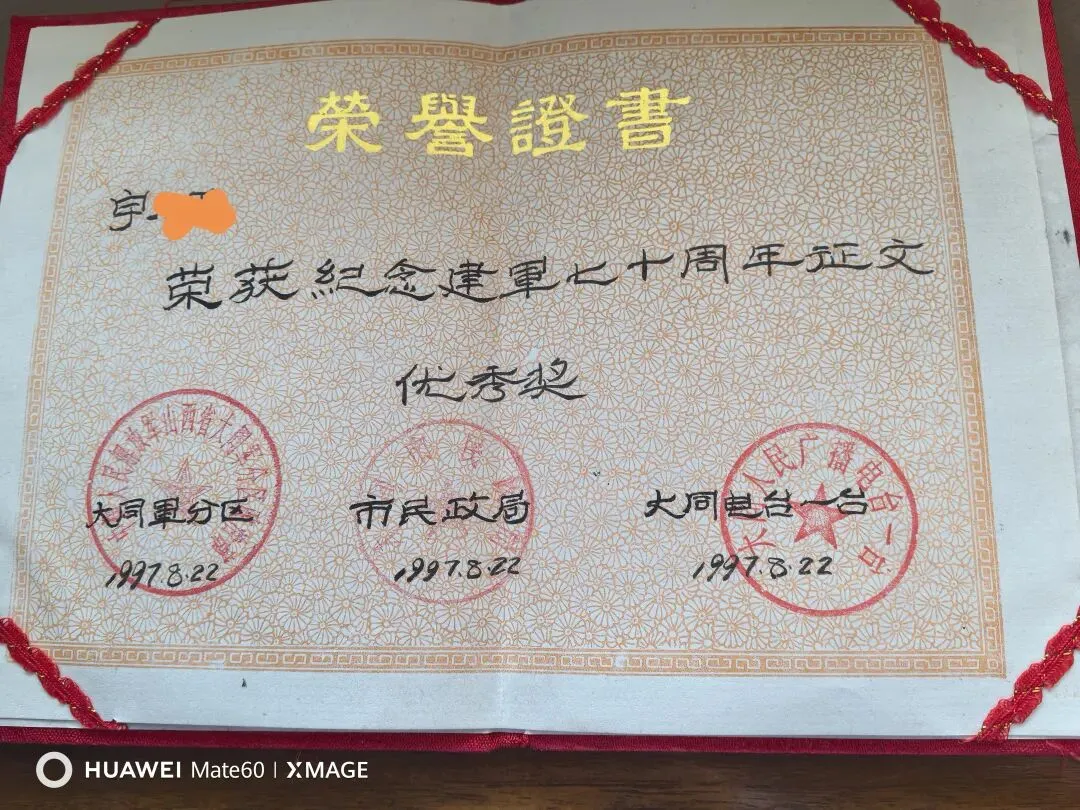 榮譽證書
宇
荣获紀念建軍七十周年征文
优秀奖
大同軍分区
市民政局
大同电台一台
1997.8.22
1997.8.22
1997.8.22
人民广播电台一台
HUAWEI Mate60 | XMAGE